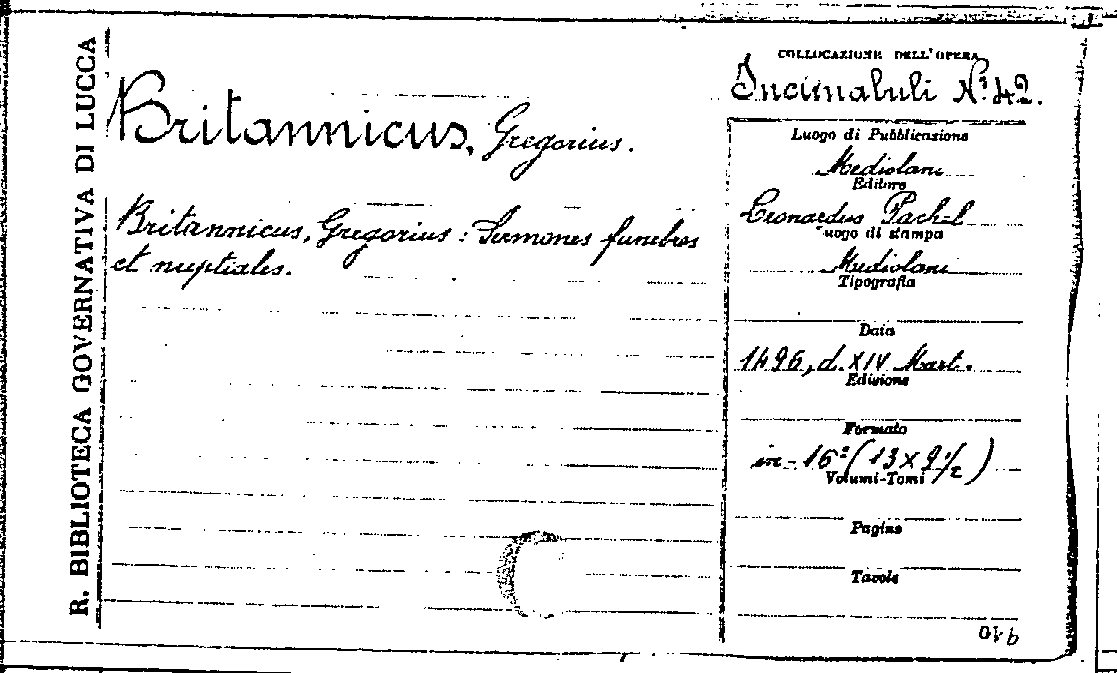 R. BIBLIOTECA GOVERNATIVA DI LUCCA
Britannicus, Gregorius.
Britannicus, Gregorius: Sermones funebres
et nuptiales.
COLLOCAZIONE DELL'OPERA
Incunabuli Nº 42.
Luogo di Pubblicazione
Mediolani
Editore
Leonardus Pachel
Luogo di stampa
Mediolani
Tipografia
Data
1496, d. XIV Mart.
Edizione
Formato
in-16º (13 x 9 1/2)
Volumi-Tomi
Pagine
Tavole